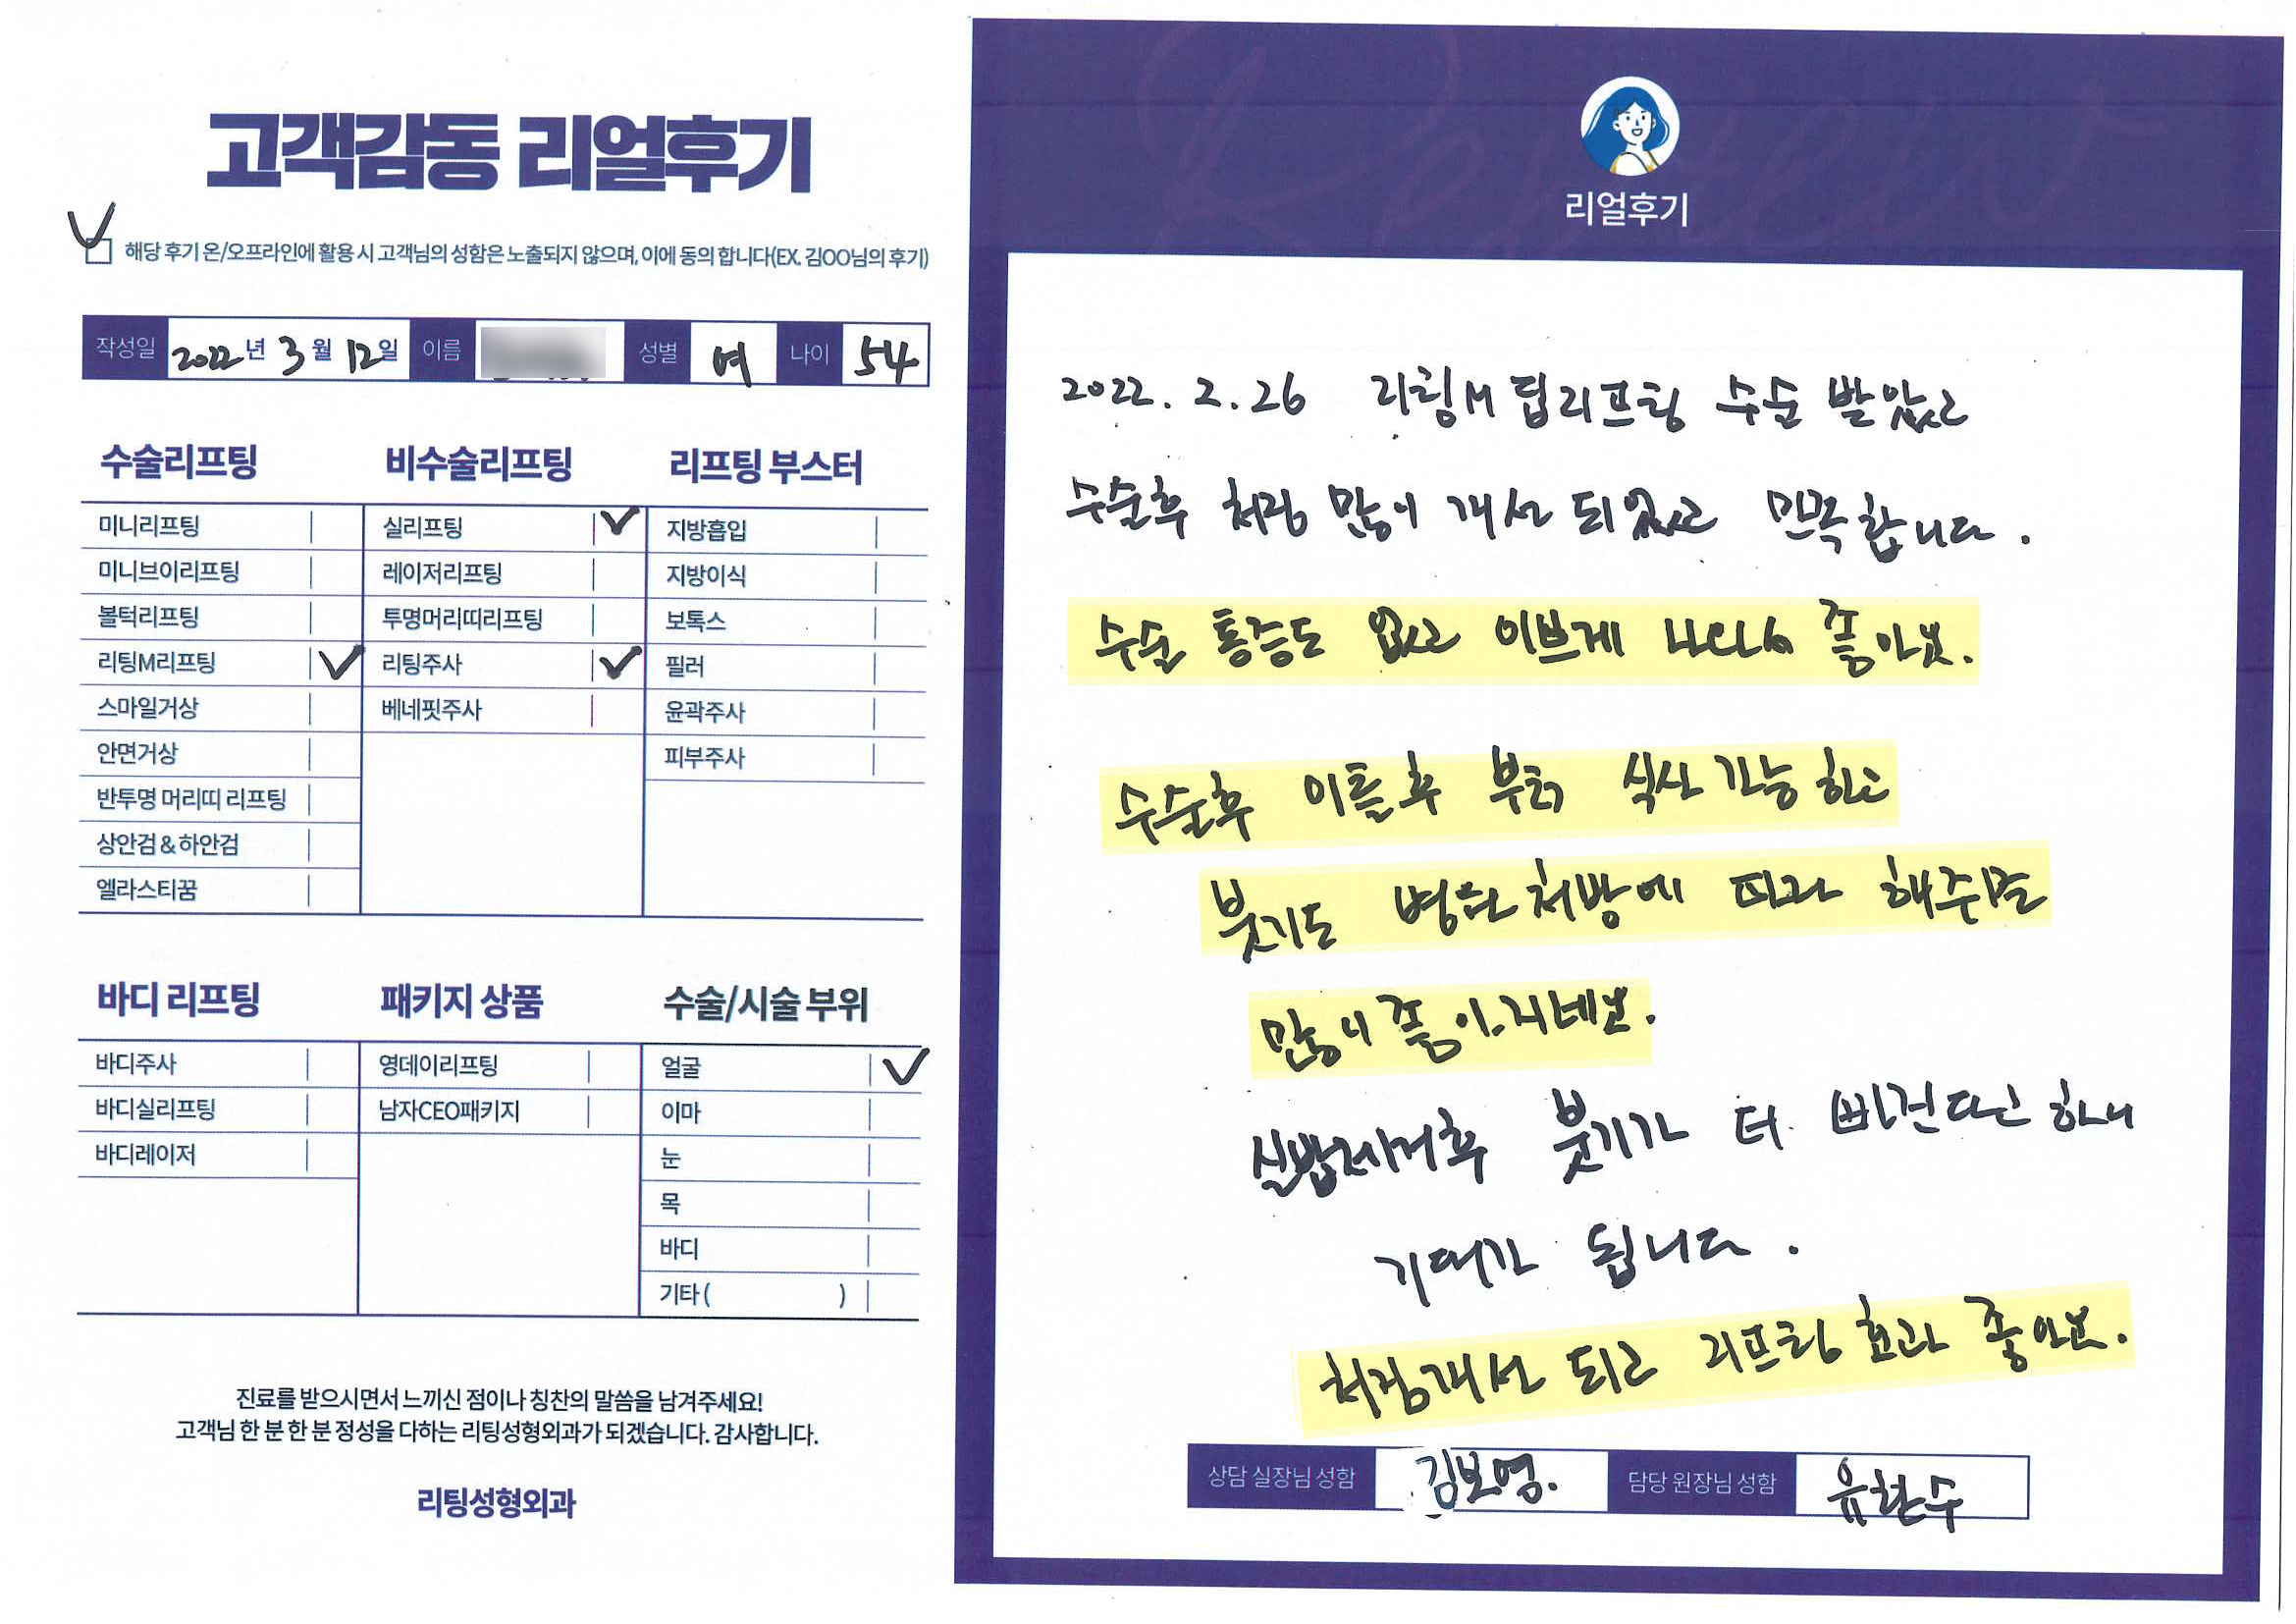 고객감동 리얼후기
해당 후기 온/오프라인에 활용 시 고객님의 성함은 노출되지 않으며, 이에 동의 합니다(EX. 김OO님의 후기)
작성일 2022년 3월 12일 이름 성별 여 나이 54
수술리프팅
미니리프팅
미니브이리프팅
볼턱리프팅
리팅M리프팅
스마일거상
안면거상
반투명 머리띠 리프팅
상안검 & 하안검
엘라스티꿈
비수술리프팅
실리프팅
레이저리프팅
투명머리띠리프팅
리팅주사
베네핏주사
리프팅 부스터
지방흡입
지방이식
보톡스
필러
윤곽주사
피부주사
바디 리프팅
바디주사
바디실리프팅
바디레이저
패키지 상품
영데이리프팅
남자CEO패키지
수술/시술 부위
얼굴
이마
눈
목
바디
기타 ( )
진료를 받으시면서 느끼신 점이나 칭찬의 말씀을 남겨주세요!
고객님 한 분 한 분 정성을 다하는 리팅성형외과가 되겠습니다. 감사합니다.
리팅성형외과
리얼후기
2022. 2. 26 리팅M 딥리프팅 수술 받았고
수술후 처짐 많이 개선 되었고 만족합니다.
수술 통증도 없고 이쁘게 좋아요.
수술후 이틀후 부터 식사 가능하고
붓기도 병원처방에 따라 해주니
많이 좋아지네요.
실밥제거후 붓기가 더 빠진다고 하니
기대가 됩니다.
처짐개선 되고 리프팅 효과 좋아요.
상담 실장님 성함 김보영. 담당 원장님 성함 유한수